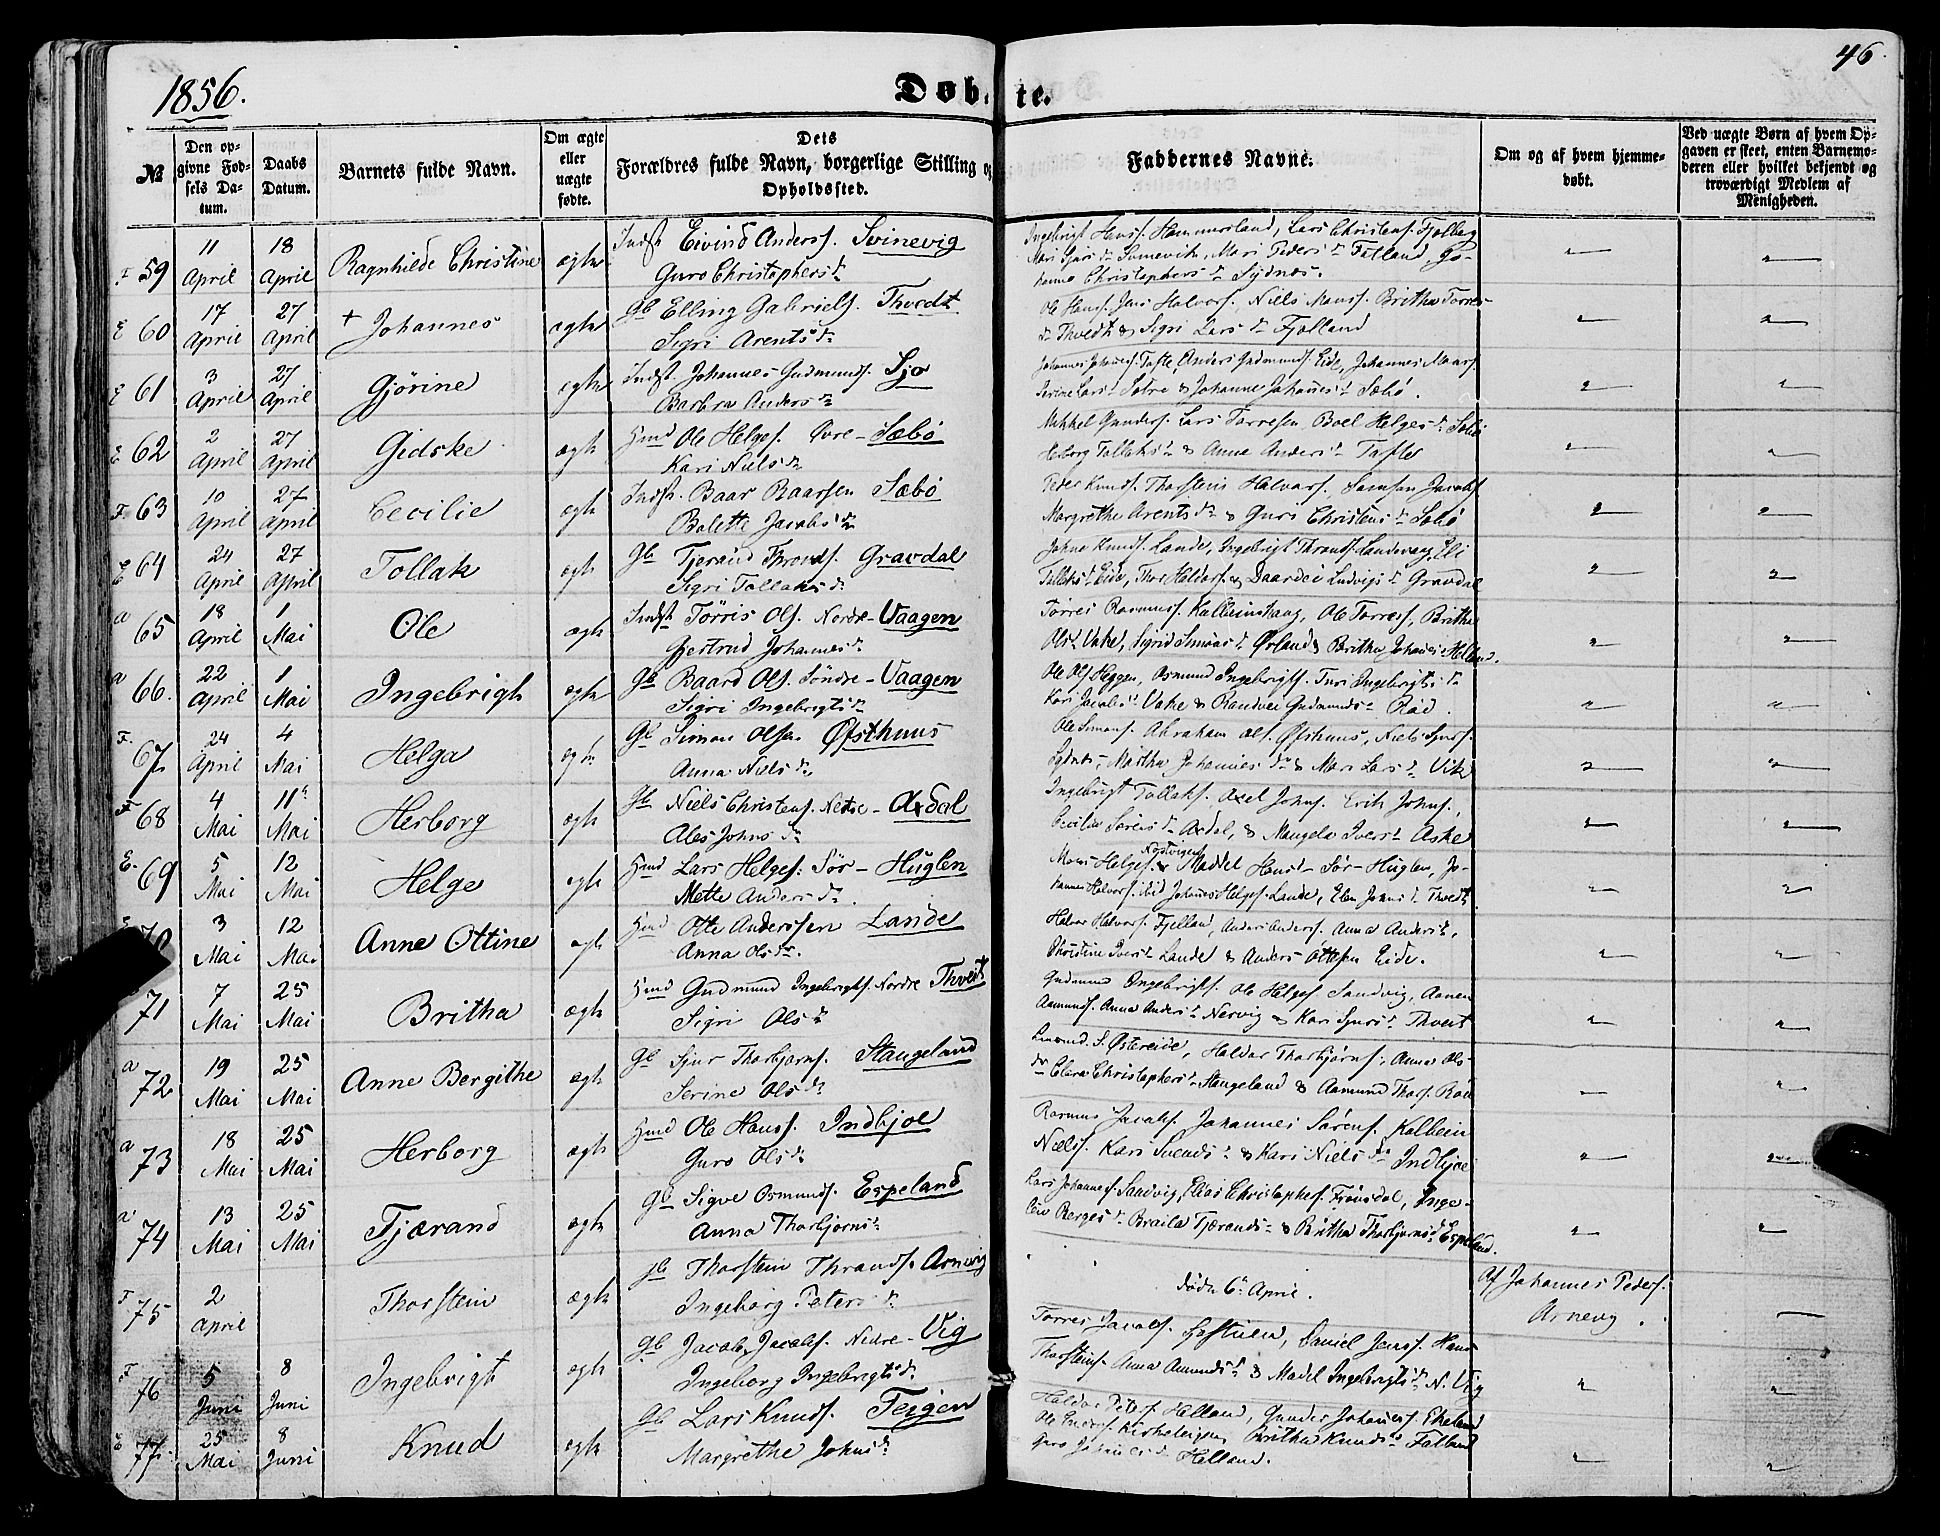 1856.
Døbte.
46
№
Den opgivne Fødsels Datum.
Daabs Datum.
Barnets fulde Navn.
Om ægte eller uægte fødte.
Dets Forældres fulde Navn, borgerlige Stilling og Opholdssted.
Faddernes Navne.
Om og af hvem hjemmedøbt.
Ved uægte Børn af hvem Opgaven er skeet, enten Barnemoderen eller hvilket bekjendt og troværdigt Medlem af Menigheden.
59 11 April 18 April Ragnhilde Christine ægte Indst Eivind Anders. Svinevig
Guro Christophersd.
Ingebrigt Hans. Hammersland, Lars Christens. Fjelberg
Johanna Christophersd. Sydnes.
60 17 April 27 April + Johannes ægte Gb Elling Gabriels. Thvedt
Sigri Arentsd.
Ole Hans. Jens Halvors. Niels Mons. Britha Torresd. Thvedt & Sigri Larsd. Fjelland
61 3 April 27 April Gjørine ægte Indst Johannes Gudmunds. Sjo
Barbra Andersd.
Johannes Johannes. Tofte, Anders Gudmunds. Eide, Johannes
Serine Larsd. Sætre & Johanne Johannesd. Sæbø.
62 2 April 27 April Gidske ægte Hmd Ole Helges. Øvre-Sæbø
Kari Nielsd.
Mikkel Gunders. Lars Torresen Boel Helgesd. Sæbø
Herborg Tollaksd. & Anna Andersd. Tofte
63 10 April 27 April Cecilie ægte Indst. Baar Baarsen Sæbø
Bolette Jacobsd.
Peder Knuds. Thorstein Halvors. Samson Jacobs.
Margrethe Arentsd. & Guri Christensd. Sæbø
64 24 April 27 April Tollak ægte Gb Tjerand Thronds. Gravdal
Sigri Tollaksd.
Johne Knuds. Lande, Ingebrigt Thrands. Landevaag, Eli
Tollaksd. Eide, Thor Haldors. & Daardei Ludvigsd. Gravdal
65 18 April 1 Mai Ole ægte Indst Tørris Ols. Nordre-Vaagen
Gjertrud Johannesd.
Tørres Rasmus. Kalleinshaug, Ole Torres., Britha
Olsd. Vake, Sigrid Simonsd. Ørland & Britha Johannesd. Helland.
66. 22 April 1 Mai Ingebrigt ægte Gb Baard Ols. Søndre-Vaagen
Sigri Ingebrigtsd.
Ole Ols. Heggen, Osmund Ingebrigts. Turi Ingebrigtsd.
Kari Jacobsd. Vake & Randvei Gudmundsd. Rød.
67 24 April 4 Mai Helga ægte Gb Simon Olsen Øfsthuus
Anna Nielsd.
Ole Simons. Abraham Ols. Øfsthuus, Niels Sjurs.
Sydnes, Martha Johannesd. & Mari Larsd. Vik
68 4 Mai 11te Mai Herborg ægte Gb Niels Christens. Nedre-Axdal
Ales Johnsd.
Ingebrigt Tollaks. Axel Johns. Erik Johns.,
Cecilie Sørensd. Axdal, & Mangela Iversd. Aske
69 5 Mai 12 Mai Helge ægte Hmd Lars Helges. Sør-Huglen
Mette Andersd.
Mons Helges. Nordvigen & Maddel Hansd. Sør-Huglen, Johannes Halvors. ibid Johannes Helges. Lande, Elen Johnsd. Thvedt
70 3 Mai 12 Mai Anne Ottine ægte Hmd Otte Anderssen Lande
Anna Olsd.
Halvor Halvors. Fjelland, Anders Anders. Anna Andersd.,
Christine Iversd. Lande & Anders Ottesen Eide.
71 7 Mai 25 Mai Britha ægte Hmd Gudmund Ingebrigts. Nordre Thveit
Sigri Olsd.
Gudmund Ingebrigts. Ole Helges. Sandvig, Aanen
Aamunds. Anna Andersd. Nervig & Kari Sjursd. Thveit
72 19 Mai 25 Mai Anne Bergithe ægte Gb Sjur Thorbjørns. Stangeland
Serine Olsd.
S. Østereide, Haldor Thorbjørns., Anna Olsd. Elera Christophersd. Stangeland & Aamund Thors. Rød
73 18 Mai 25 Mai Herborg ægte Hmd Ole Hans. Indbjoe
Guro Olsd.
Rasmus Jacobs. Johannes Sørens. Kolbein
Niels. Kari Svendsd. & Kari Nielsd. Indbjoe
74 13 Mai 25 Mai Tjærand ægte Gb Sigve Osmunds. Espeland
Anna Thorbjørnsd.
Lars Johannes. Sandvig, Elias Christophers. Frønsdal, Ingeleiv Bergesd. Braila Tjærandsd. & Britha Thorbjørnsd. Espeland.
75 2 April Thorstein ægte Gb Thorstein Thrands. Arnevig
Ingeborg Petersd.
døde 6te April.
Af Johannes Peders.
Arnevig.
76 5 Juni 8 Juni Ingebrigt ægte Gb Jacob Jacobs. Nedre-Vig
Ingeborg Ingebrigtsd.
Torres Jacobs. Daniel Jens. Hans
Thorsteins. Anna Amundsd. & Madel Ingebrigtsd. N. Vig
77. 25 Mai 8 Juni Knud ægte Gb Lars Knuds. Teigen
Margrethe Johnsd.
Haldor Peters. Helland, Gunder Johannes. Ekeland
Ole Kirketeigen, Britha Knudsd. Fatland
Guro Johannesd. Helland.